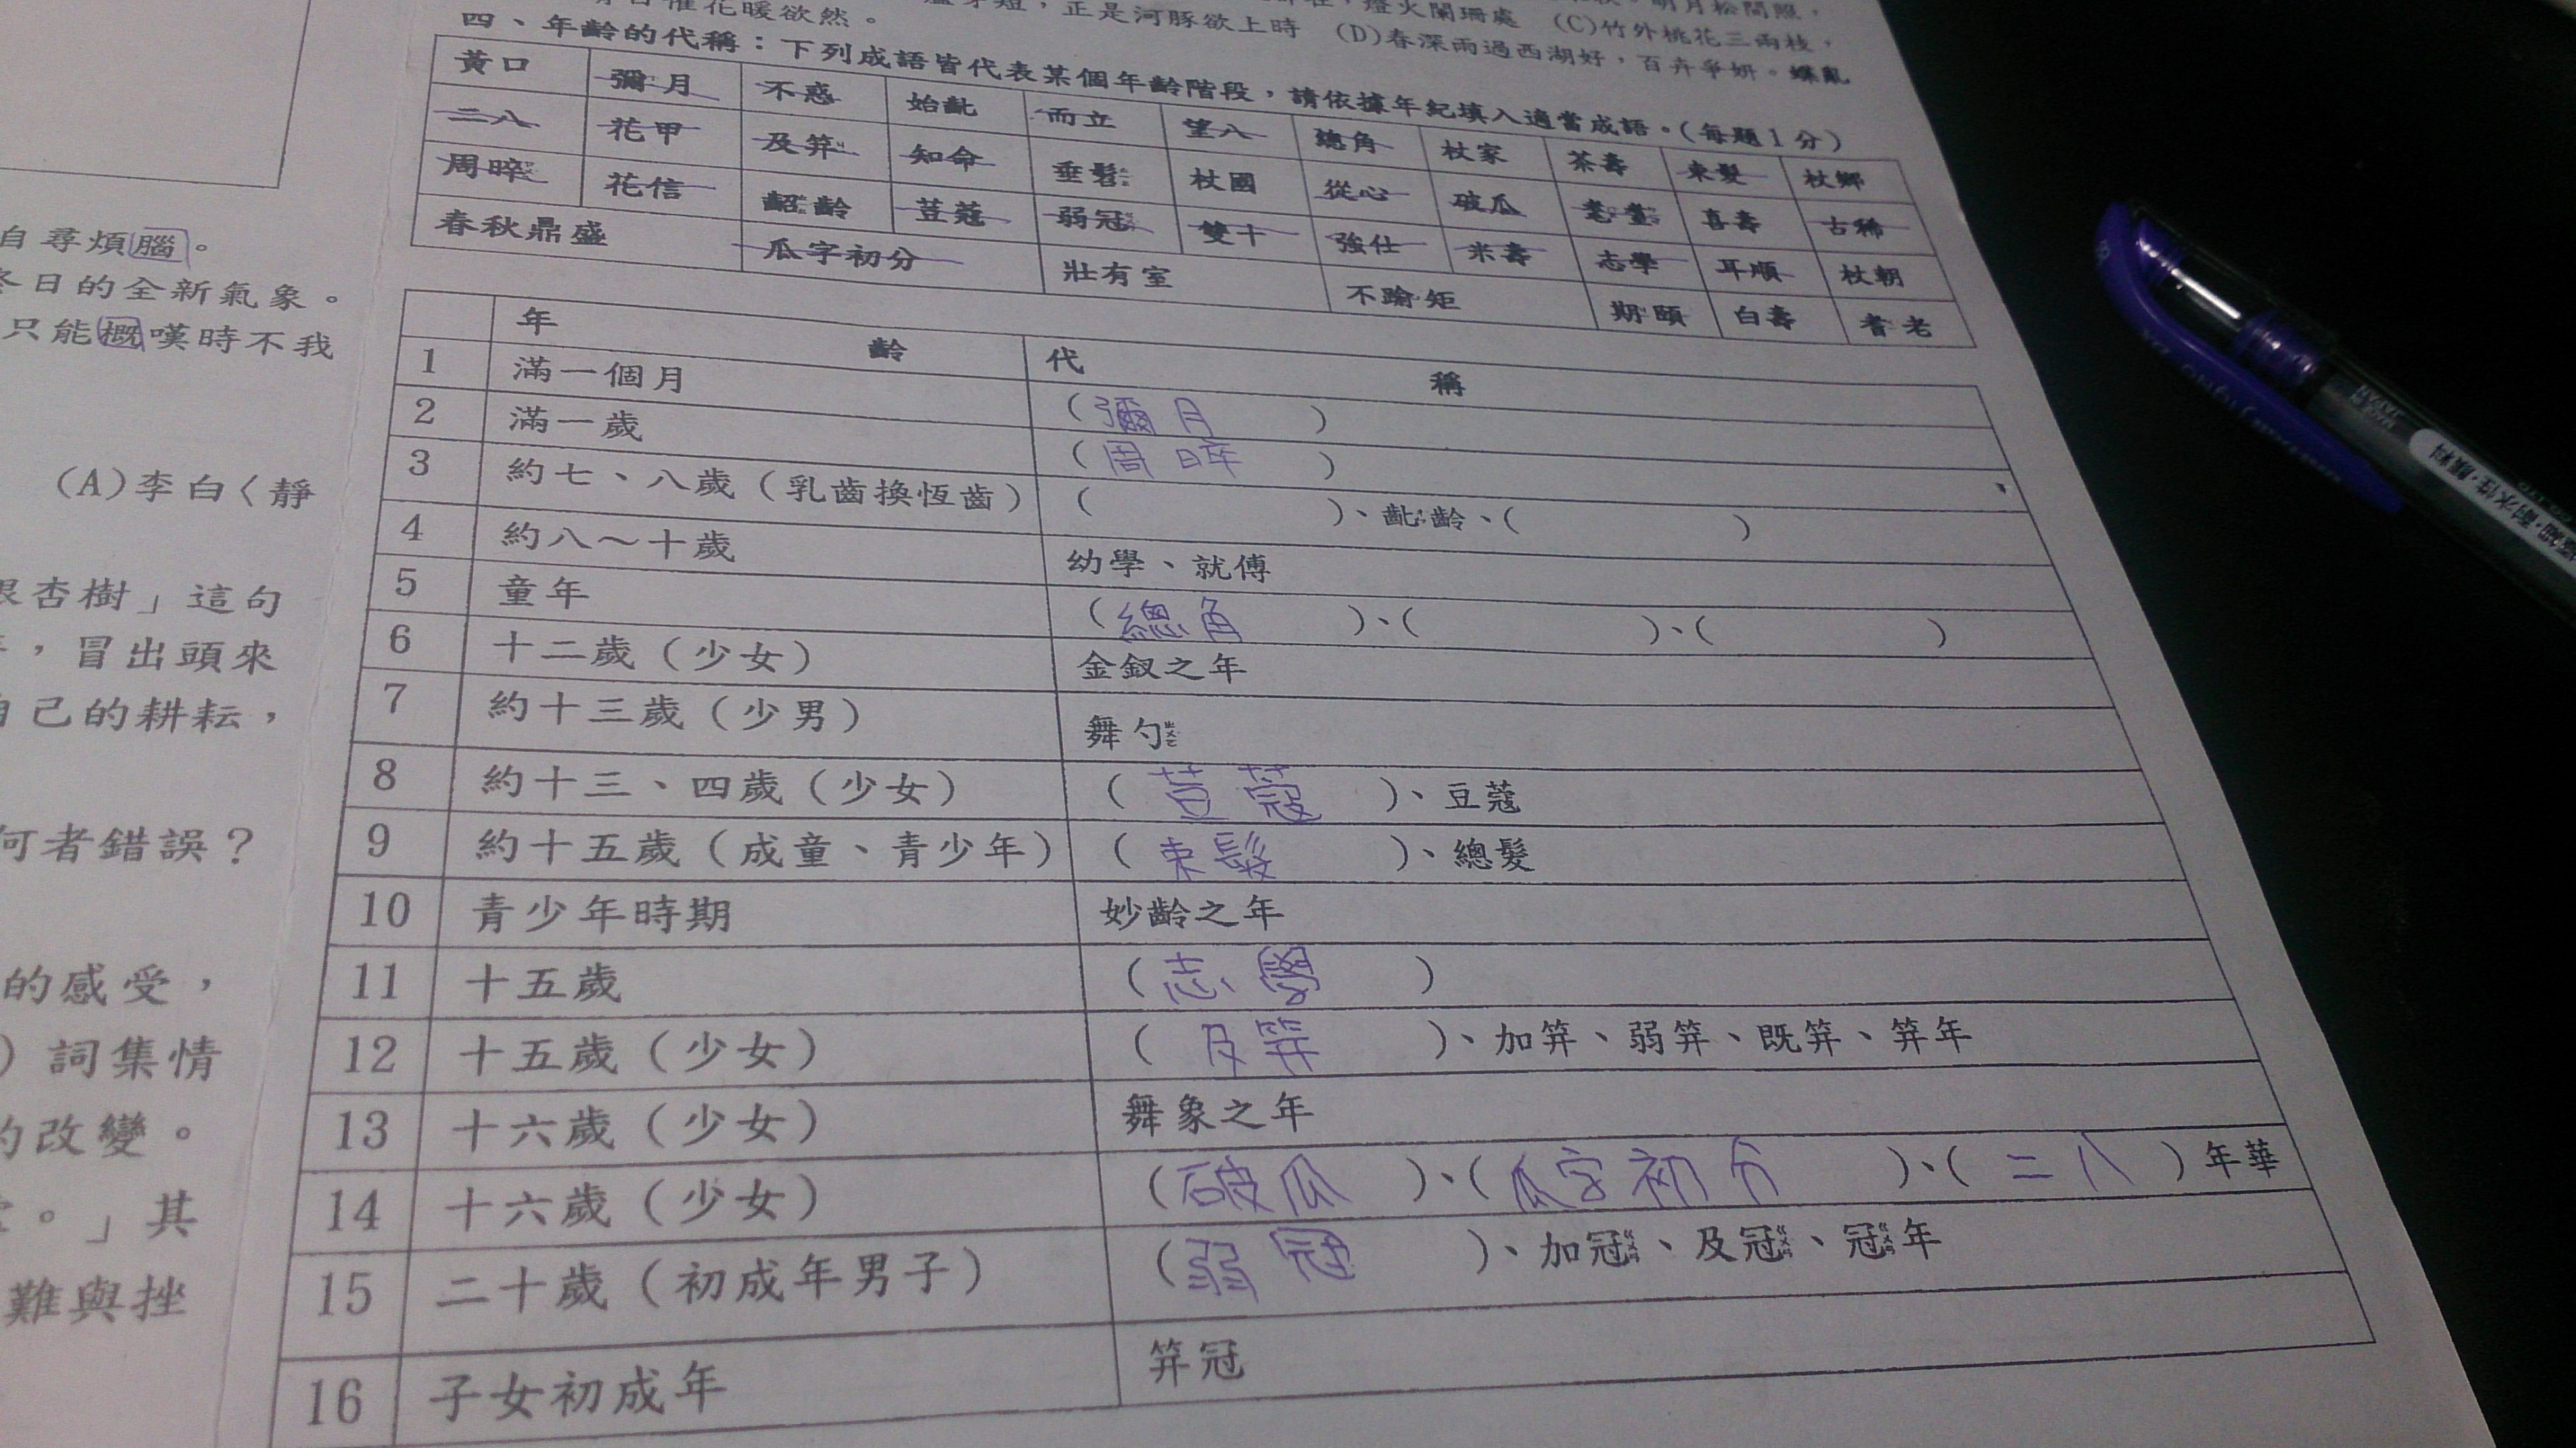 青自催花暖欲然。
正是河豚欲上時 (D)春深雨過西湖好,百卉爭妍。蝶亂
燈火闌珊處 (C)竹外桃花三兩枝,
明月松間照,
四、年齡的代稱:下列成語皆代表某個年齡階段,請依據年紀填入適當成語。(每題1分)
黃口 彌月 不惑 始齔 而立 望八 總角 杖家 茶壽 束髮 杖鄉
二八 花甲 及笄 知命 垂髫 杖國 從心 破瓜 耄耋 喜壽 古稀
周晬 花信 齠齡 荳蔻 弱冠 雙十 強仕 米壽 志學 耳順 杖朝
春秋鼎盛 瓜字初分 壯有室 不踰矩 期頤 白壽 耆老
年 齡 代 稱
1 滿一個月 (彌月)
2 滿一歲 (周晬)
3 約七、八歲(乳齒換恆齒) ( )、齔齡、( )
4 約八~十歲 幼學、就傅
5 童年 (總角)、( )、( )
6 十二歲(少女) 金釵之年
7 約十三歲(少男) 舞勺
8 約十三、四歲(少女) (荳蔻)、豆蔻
9 約十五歲(成童、青少年) (束髮)、總髮
10 青少年時期 妙齡之年
11 十五歲 (志學)
12 十五歲(少女) (及笄)、加笄、弱笄、既笄、笄年
13 十六歲(少女) 舞象之年
14 十六歲(少女) (破瓜)、(瓜字初分)、(二八)年華
15 二十歲(初成年男子) (弱冠)、加冠、及冠、冠年
16 子女初成年 笄冠
自尋煩腦。
冬日的全新氣象。
只能概嘆時不我
(A)李白〈靜
銀杏樹」這句
,冒出頭來
自己的耕耘,
何者錯誤?
的感受,
)詞集情
的改變。
。」其
難與挫
耐水性·顏料
MADE IN JAPAN